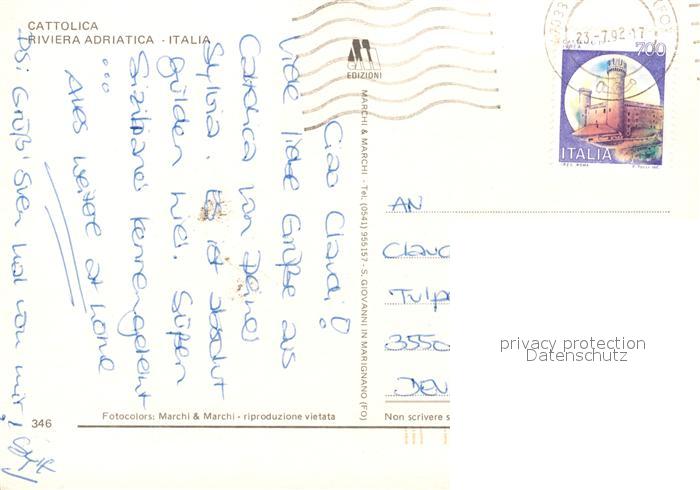 CATTOLICA
RIVIERA ADRIATICA - ITALIA
Ciao Claudi!
Viele liebe Grüße aus
Cattolica von Deiner
Sylvia. Es ist absolut
gülden hier. Süßen
Sizilianer kennengelernt
...
Alles weitere at home
PS: Grüß' Sven mal von mir!
EDIZIONI
MARCHI & MARCHI - Tel. (0541) 955157 - S. GIOVANNI IN MARIGNANO (FO)
23.-7.92-17
47033
(FO)
700
ITALIA
AN
Claud
Tulp
3550
DEU
privacy protection
Datenschutz
346
Fotocolors: Marchi & Marchi - riproduzione vietata
Non scrivere s